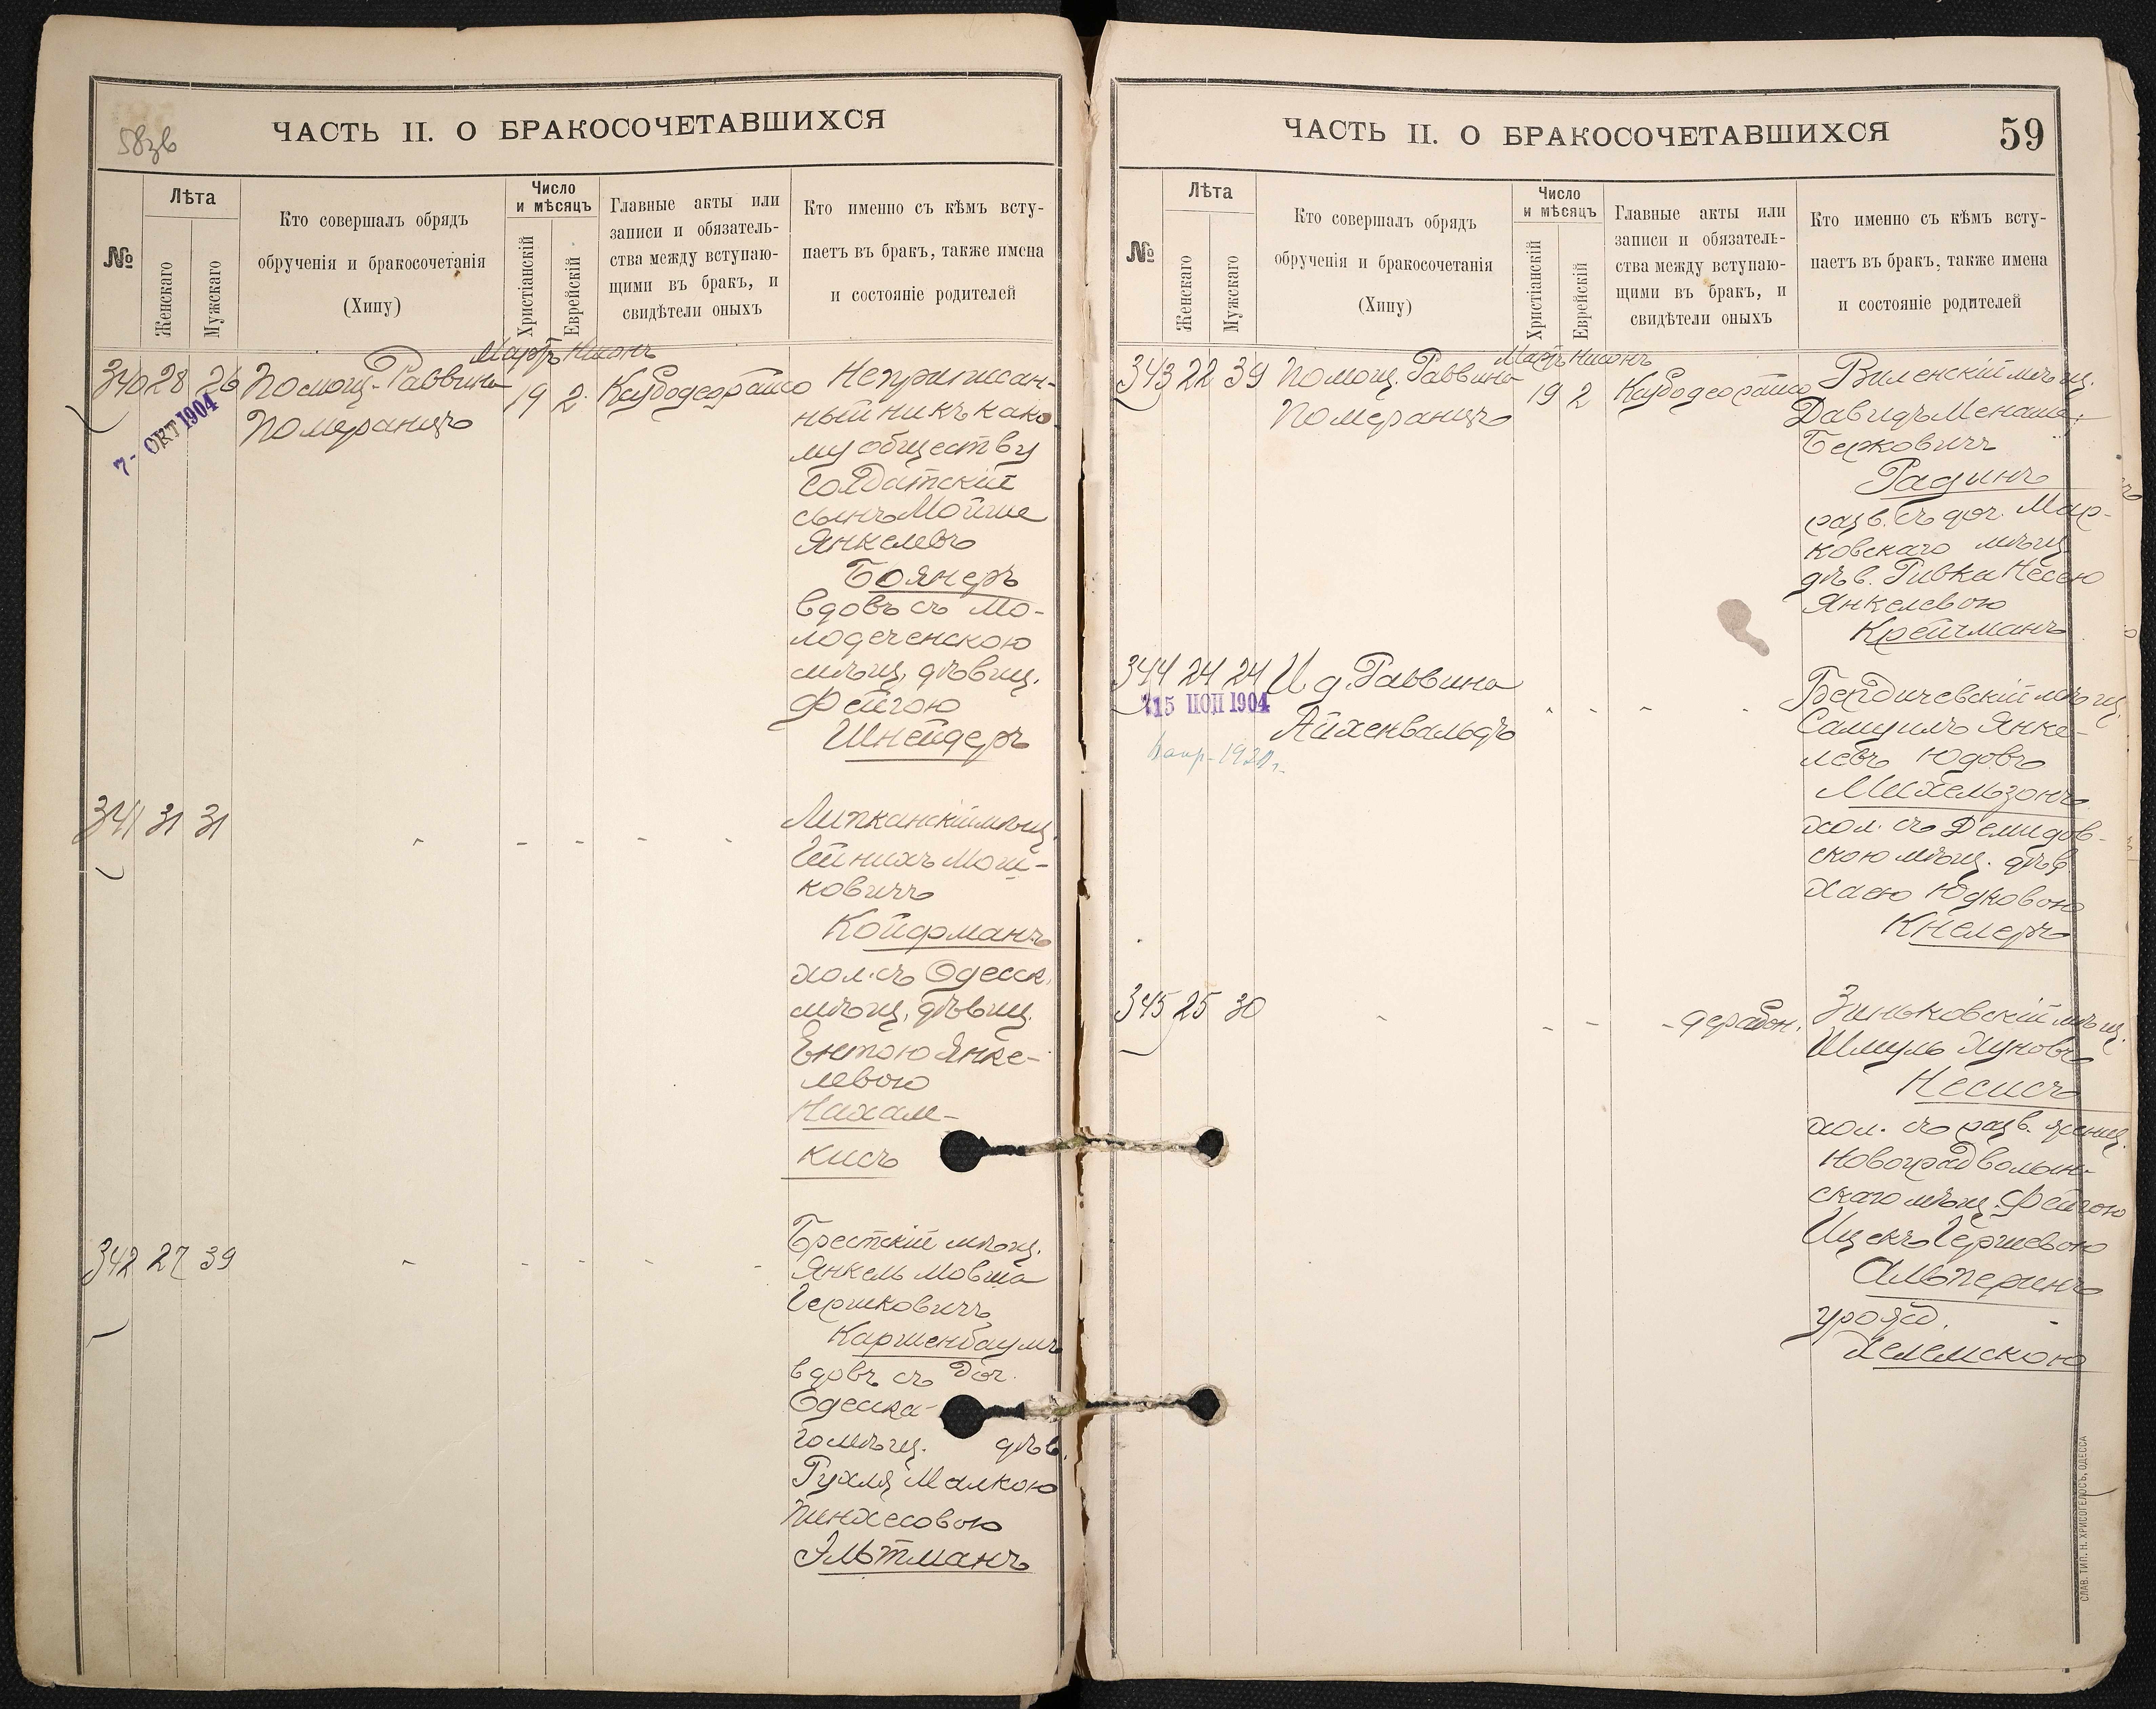 58зв
ЧАСТЬ II. О БРАКОСОЧЕТАВШИХСЯ
№
Лѣта
Женскаго
Мужскаго
Кто совершалъ обрядъ
обрученія и бракосочетанія
(Хипу)
Число
и мѣсяцъ
Христіанскій
Еврейскій
Главные акты или
записи и обязатель-
ства между вступаю-
щими въ бракъ, и
свидѣтели оныхъ
Кто именно съ кѣмъ всту-
паетъ въ бракъ, также имена
и состояніе родителей
Мартъ Нисонъ
340 28 26 Помощ. Раввина
Померанцъ
19 2
7- ОКТ 1904
Неприписан-
ный ни къ како-
му обществу
солдатскій
сынъ Мойше
Янкелевъ
Боянеръ
вдовъ съ Мо-
лодеченскою
мѣщ. дѣвиц.
Фейгою
Шнейдеръ
341 31 31 - - - - -
Липканскій мѣщ.
Гейнихъ Мош-
ковичъ
Койфманъ
хол. съ Одесск.
мѣщ. дѣвиц.
Ентою Янке-
левою
Нахам-
кисъ
342 27 39 - - - - -
Брестскій мѣщ.
Янкель Мовша
Гершковичъ
Каршенбаумъ
вдовъ съ доч.
Одесска-
го мѣщ. дѣв.
Рухля Малкою
Пинхесовою
Эльтманъ
ЧАСТЬ II. О БРАКОСОЧЕТАВШИХСЯ
59
№
Лѣта
Женскаго
Мужскаго
Кто совершалъ обрядъ
обрученія и бракосочетанія
(Хипу)
Число
и мѣсяцъ
Христіанскій
Еврейскій
Главные акты или
записи и обязатель-
ства между вступаю-
щими въ бракъ, и
свидѣтели оныхъ
Кто именно съ кѣмъ всту-
паетъ въ бракъ, также имена
и состояніе родителей
Мартъ Нисонъ
343 22 39 Помощ. Раввина
Померанцъ
19 2
Виленскій мѣщ.
Давидъ Менаше
Берковичъ
Радинъ
разв. съ доч. Мар-
ковскаго мѣщ.
дѣв. Ривка Несею
Янкелевою
Крейчманъ
344 24 24 И д. Раввина
Айхенвальдъ
- - - -
15 1904
Бердичевскій мѣщ.
Самуилъ Янке-
левъ Юдовъ
Михельзонъ
хол. съ Демидов-
скою мѣщ. дѣв.
Хаею Юдковою
Кнелеръ
345 25 30 - - -
Зиньковскій мѣщ.
Шмуль Хуновъ
Несисъ
хол. съ разв. женщ.
Новоградволын-
скаго мѣщ. Фейгою
Ицекъ Гершевою
Альперинъ
урожд.
Хелемскою
СЛАВ. ТИП. Н. ХРИСОГЕЛОСЪ, ОДЕССА